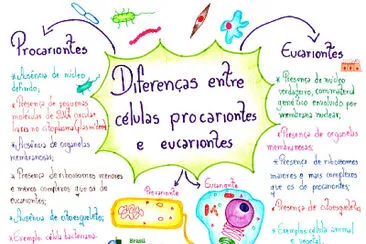 Procariontes
* Ausência de núcleo
definido;
* Presença de pequenas
moléculas de DNA circu-
lares no citoplasma
* Ausência de organelas
membranosas;
* Presença de ribossomos menores
e menos complexos que os de
eucariontes;
* Ausência de citoesqueleto;
* Exemplos: célula bacteriana.
Diferenças entre
células procariontes
e eucariontes
Procarionte
Eucarionte
Brasil
Eucariontes
* Presença de núcleo
verdadeiro, com material
genético envolvido por
membrana nuclear;
* Presença de organelas
membranosas;
* Presença de ribossomos
maiores e mais complexos
que os de procariontes;
* Presença de citoesqueleto
* Exemplos: célula animal
e vegetal.